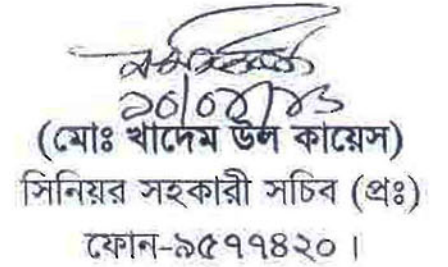 (মোঃ খাদেম উল কায়েস)
সিনিয়র সহকারী সচিব (প্রঃ)
ফোন-৯৫৭৭৪২০।